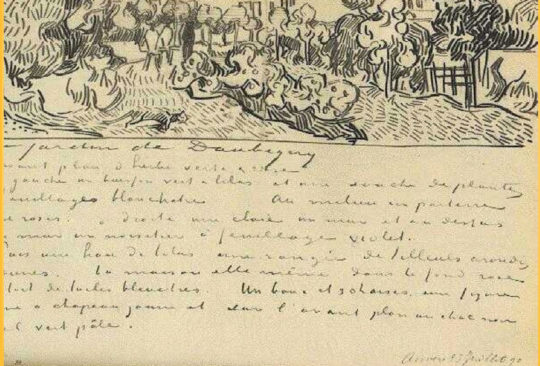 jardin de Daubigny
avant plan d'herbe verte &
gauche un buisson vert & lilas et une souche de plantes
feuillages blanchatres Au milieu un parterre
de roses. à droite une claie un mur et au dessus
mur un noisetier à feuillage violet.
une haie de lilas une rangée de tilleuls arrondis
jaunes. La maison elle même dans le fond rose
toit de tuiles bleuatres. Un banc et 3 chaises, une figure
à chapeau jaune et sur l'avant plan un chat noir
vert pâle.
Auvers 23 Juillet 90